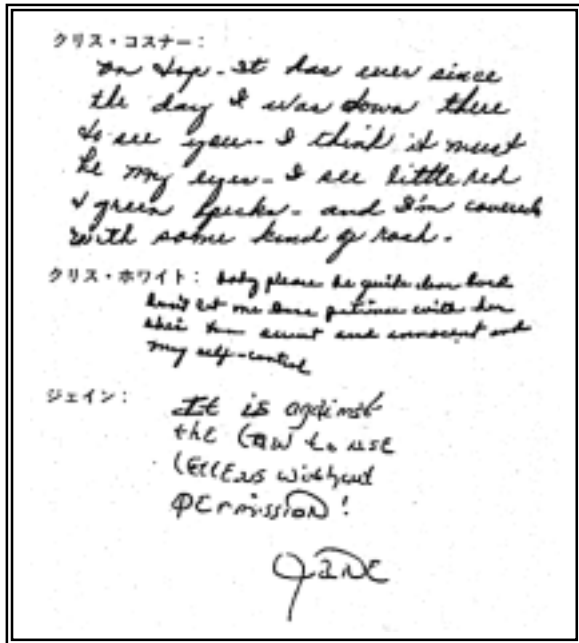 クリス・コスナー:
on top - It has ever since
the day I was down there
to see you - I think it must
be my eyes - I see little red
& green specks - and I'm covered
with some kind of rash.
クリス・ホワイト: baby please be quite dear lord
don't let me lose patience with her
she's too sweet and innocent and
my self-control
ジェイン:
It is against
the Law to use
LETTERS without
PERMISSION!
JANE